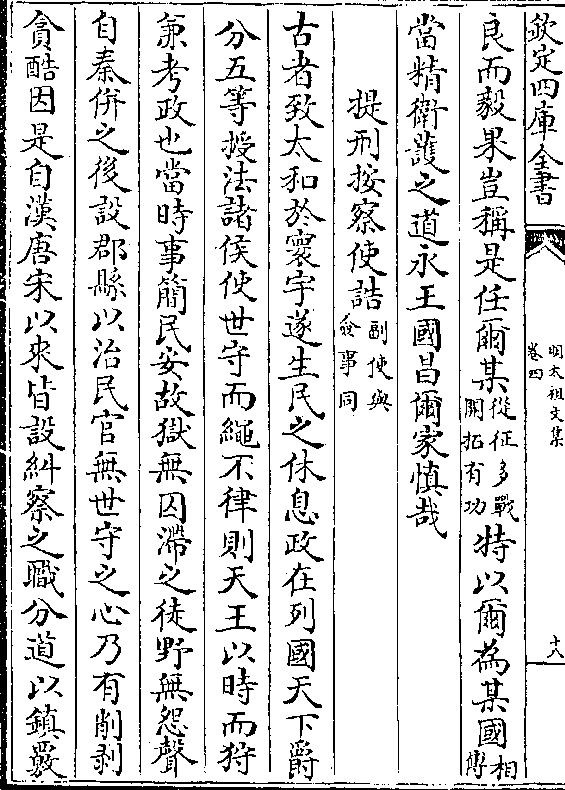 欽定四庫全書
明太祖文集
卷四
十八
良而毅果豈稱是任爾某從征多戰開拓有功特以爾為某國相傅
當精衛護之道永王國昌爾家慎哉
提刑按察使誥副使與僉事同
古者致太和於寰宇遂生民之休息政在列國天下爵
分五等授法諸侯使世守而繩不律則天王以時而狩
兼考政也當時事簡民安故獄無囚滯之徒野無怨聲
自秦併之後設郡縣以治民官無世守之心乃有削剥
貪酷因是自漢唐宋以來皆設糾察之職分道以鎮覈